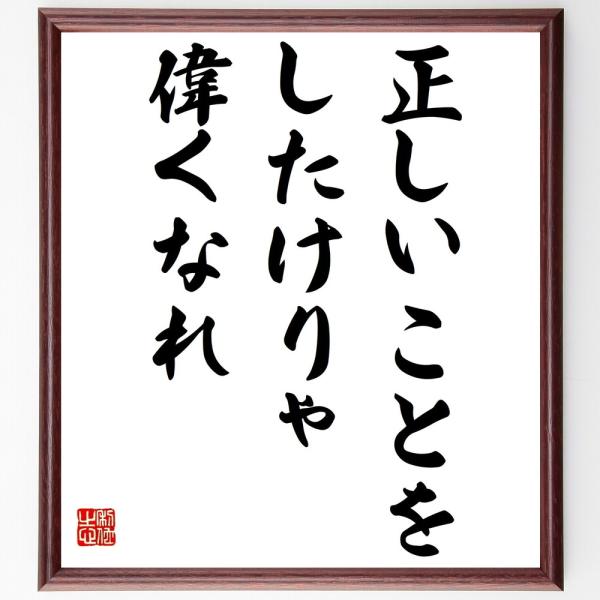 正しいことを
したけりゃ
偉くなれ